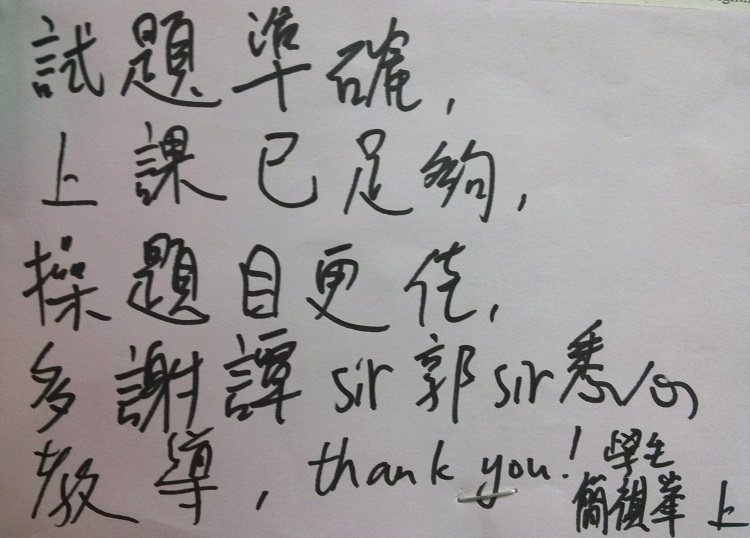 試題準確,
上課已足夠,
操題目更佳,
多謝譚sir郭sir悉心的
教導, thank you! 學生
簡禎峯 上